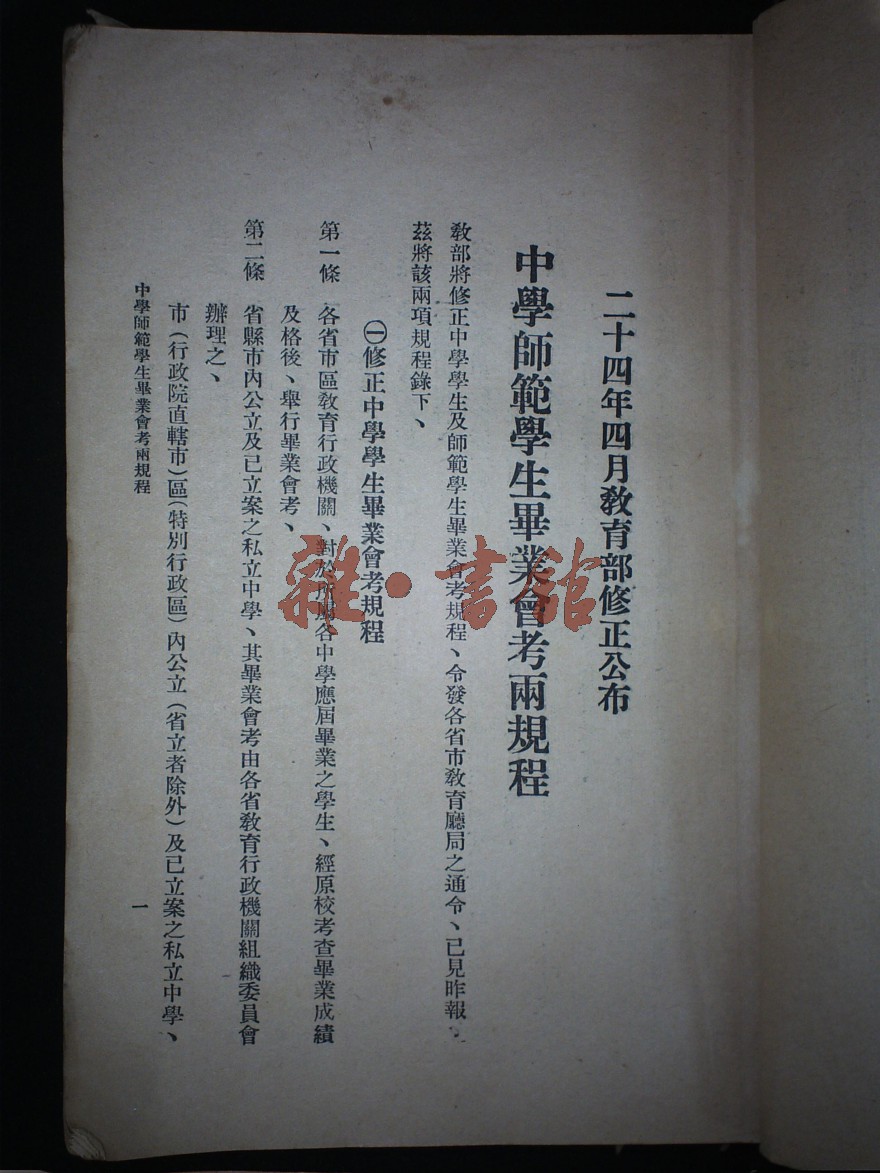 二十四年四月教育部修正公布
中學師範學生畢業會考兩規程
教部將修正中學學生及師範學生畢業會考規程、令發各省市教育廳局之通令、已見昨報、
茲將該兩項規程錄下、
㊀修正中學學生畢業會考規程
第一條　各省市區教育行政機關、對於所屬各中學應屆畢業之學生、經原校考查畢業成績
及格後、舉行畢業會考、
第二條　省縣市內公立及已立案之私立中學、其畢業會考由各省教育行政機關組織委員會
辦理之、
市（行政院直轄市）區（特別行政區）內公立（省立者除外）及已立案之私立中學、
中學師範學生畢業會考兩規程
一
雜·書館